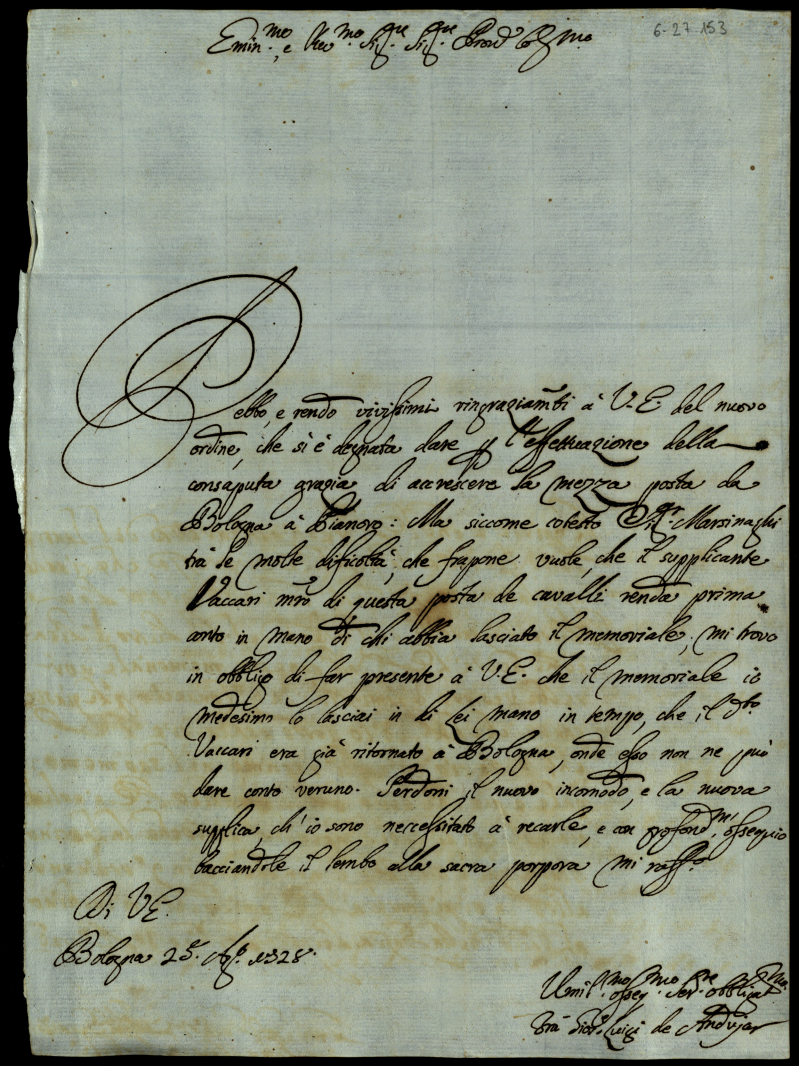 6-27-153
Emin.mo, e Rev.mo Sig.re Sig.re Pron Col.mo
Debbo, e rendo vivissimi ringraziam.ti à V.E. del nuovo
ordine, che si è degnata dare p l'effettuazione della
consaputa grazia di accrescere la mezza posta da
Bologna à Pianoro: Ma siccome cotesto Sig.r Marsinaghi
trà le molte dificoltà, che frapone vuole, che il supplicante
Vaccari mro di questa posta de cavalli renda prima
conto in mano di chi abbia lasciato il memoriale; mi trovo
in obbligo di far presente à V.E. che il memoriale io
medesimo lo lasciai in di Lei mano in tempo, che il d.to
Vaccari era già ritornato à Bologna, onde esso non ne può
dare conto veruno. Perdoni il nuovo incomodo, e la nuova
supplica, ch'io sono neccessitato à recarle, e con profond.mo ossequio
bacciandole il lembo alla sacra porpora mi rass.o
Di V.E.
Bologna 25. Ag.o 1728.
Umil.mo osseq.mo Ser.re obbligat.mo
frà Luigi de Andujar